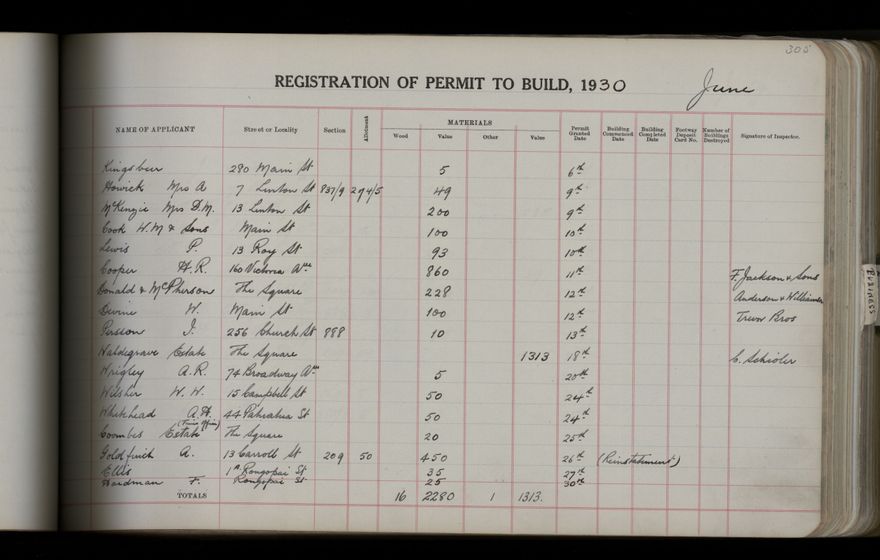 305
REGISTRATION OF PERMIT TO BUILD, 1930 June
NAME OF APPLICANT Street or Locality Section Allotment MATERIALS Wood Value Other Value Permit Granted Date Building Commenced Date Building Completed Date Footway Deposit Card No. Number of Buildings Destroyed Signature of Inspector.
Kingsbeer 280 Main St 5 6th
Howick Mrs A 7 Linton St 837/9 294/5 49 9th
McKenzie Mrs D.M. 13 Linton St 200 9th
Cook W.M & Sons Main St 100 10th
Lewis P. 13 Roy St 93 10th
Cooper H.R. 160 Victoria Ave 860 11th F. Jackson & Sons
Donald & McPherson The Square 228 12th Anderson & Williamson
Devine W. Main St 100 12th Trevor Bros
Persson J. 256 Church St 888 10 13th
Waldegrave Estate The Square 1313 18th C. Schioler
Wrigley A.R. 74 Broadway Ave 5 20th
Wilsher W.H. 15 Campbell St 50 24th
Whitehead A.H. 44 Pahiatua St 50 24th
Coombes Estate The Square 20 25th
Goldfinch A. 13 Carroll St 209 50 450 26th (Reinstatement)
Ellis 1A Rongopai St 35 27th
Hardman F. Rongopai St 25 30th
TOTALS 16 2280 1 1313.
BUSINESS